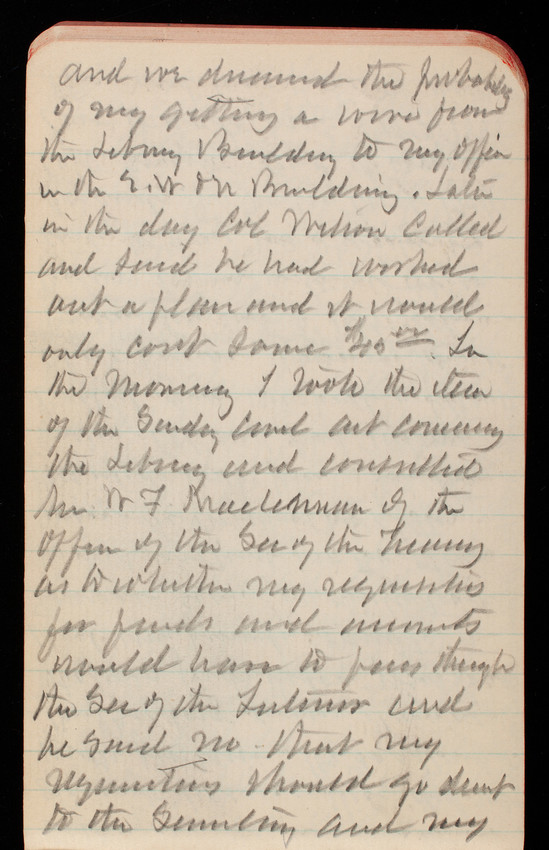 and we discussed the probability
of my getting a wire from
the Library Building to my Office
in the S. W & N Building. Later
in the day Col Wilson called
and said he had worked
out a plan and it would
only cost some $45.00. In
the morning I took the item
of the Sundry civil act concerning
the Library and consulted
Mr. W F. of the
Office of the Sec of the Treasury
as to whether my requisitions
for funds and accounts
would have to pass through
the Sec of the Interior and
he said no that my
requisitions should go direct
to the Secretary and my